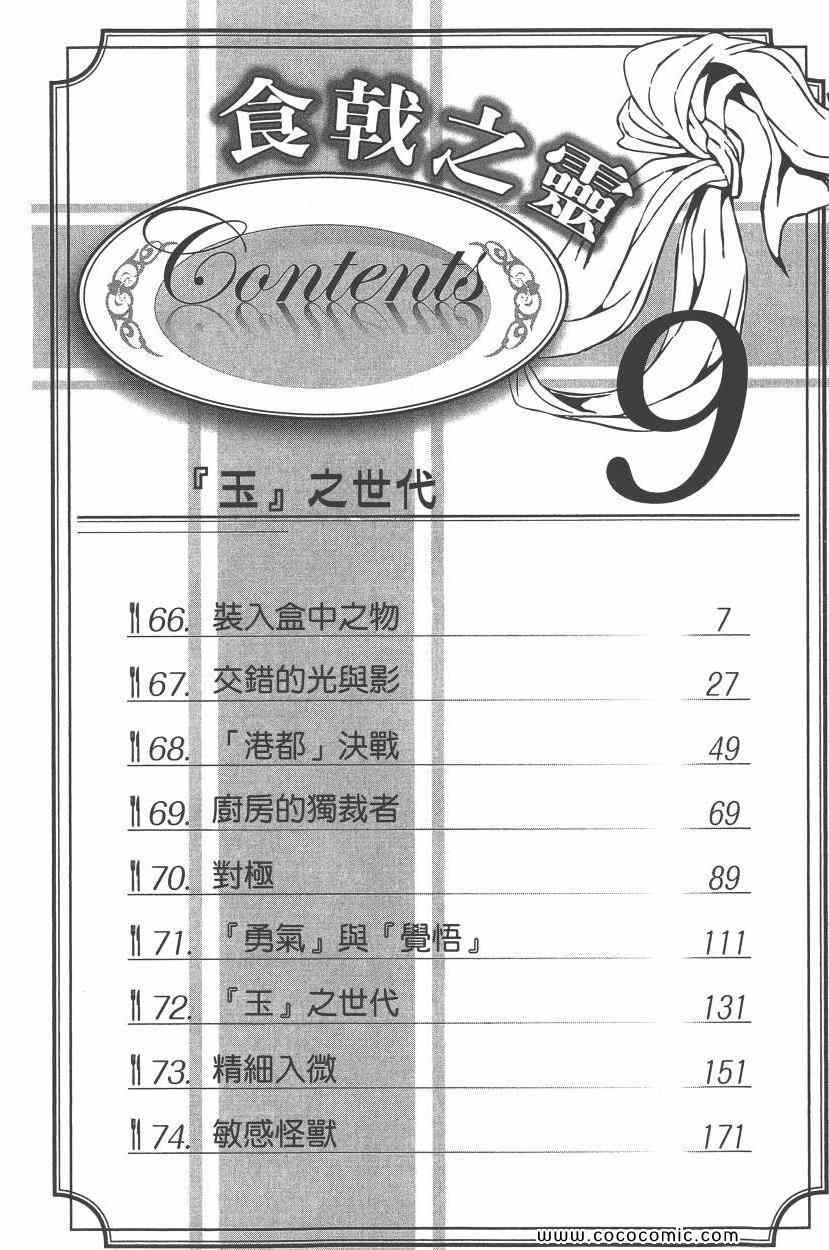 食戟之靈
Contents
9
『玉』之世代
66. 裝入盒中之物 7
67. 交錯的光與影 27
68. 「港都」決戰 49
69. 廚房的獨裁者 69
70. 對極 89
71. 『勇氣』與『覺悟』 111
72. 『玉』之世代 131
73. 精細入微 151
74. 敏感怪獸 171
www.cococomic.com